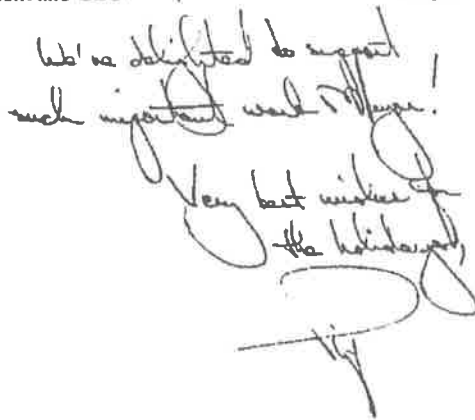 We're delighted to support
such important work Megan!
Very best wishes for
the holidays,